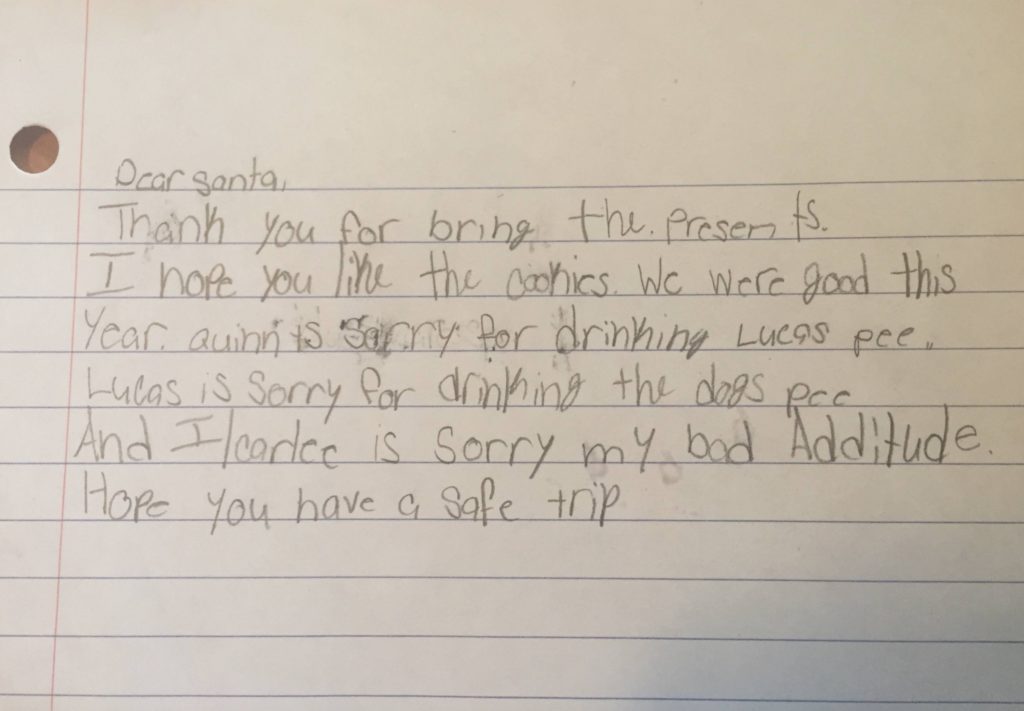 Dear santa,
Thank you for bring the. presents.
I hope you like the cookies. We were good this
year. quinn is sorry for drinking Lucas pee.
Lucas is sorry for drinking the dogs pee
And I carlee is sorry my bad Additude.
Hope you have a safe trip